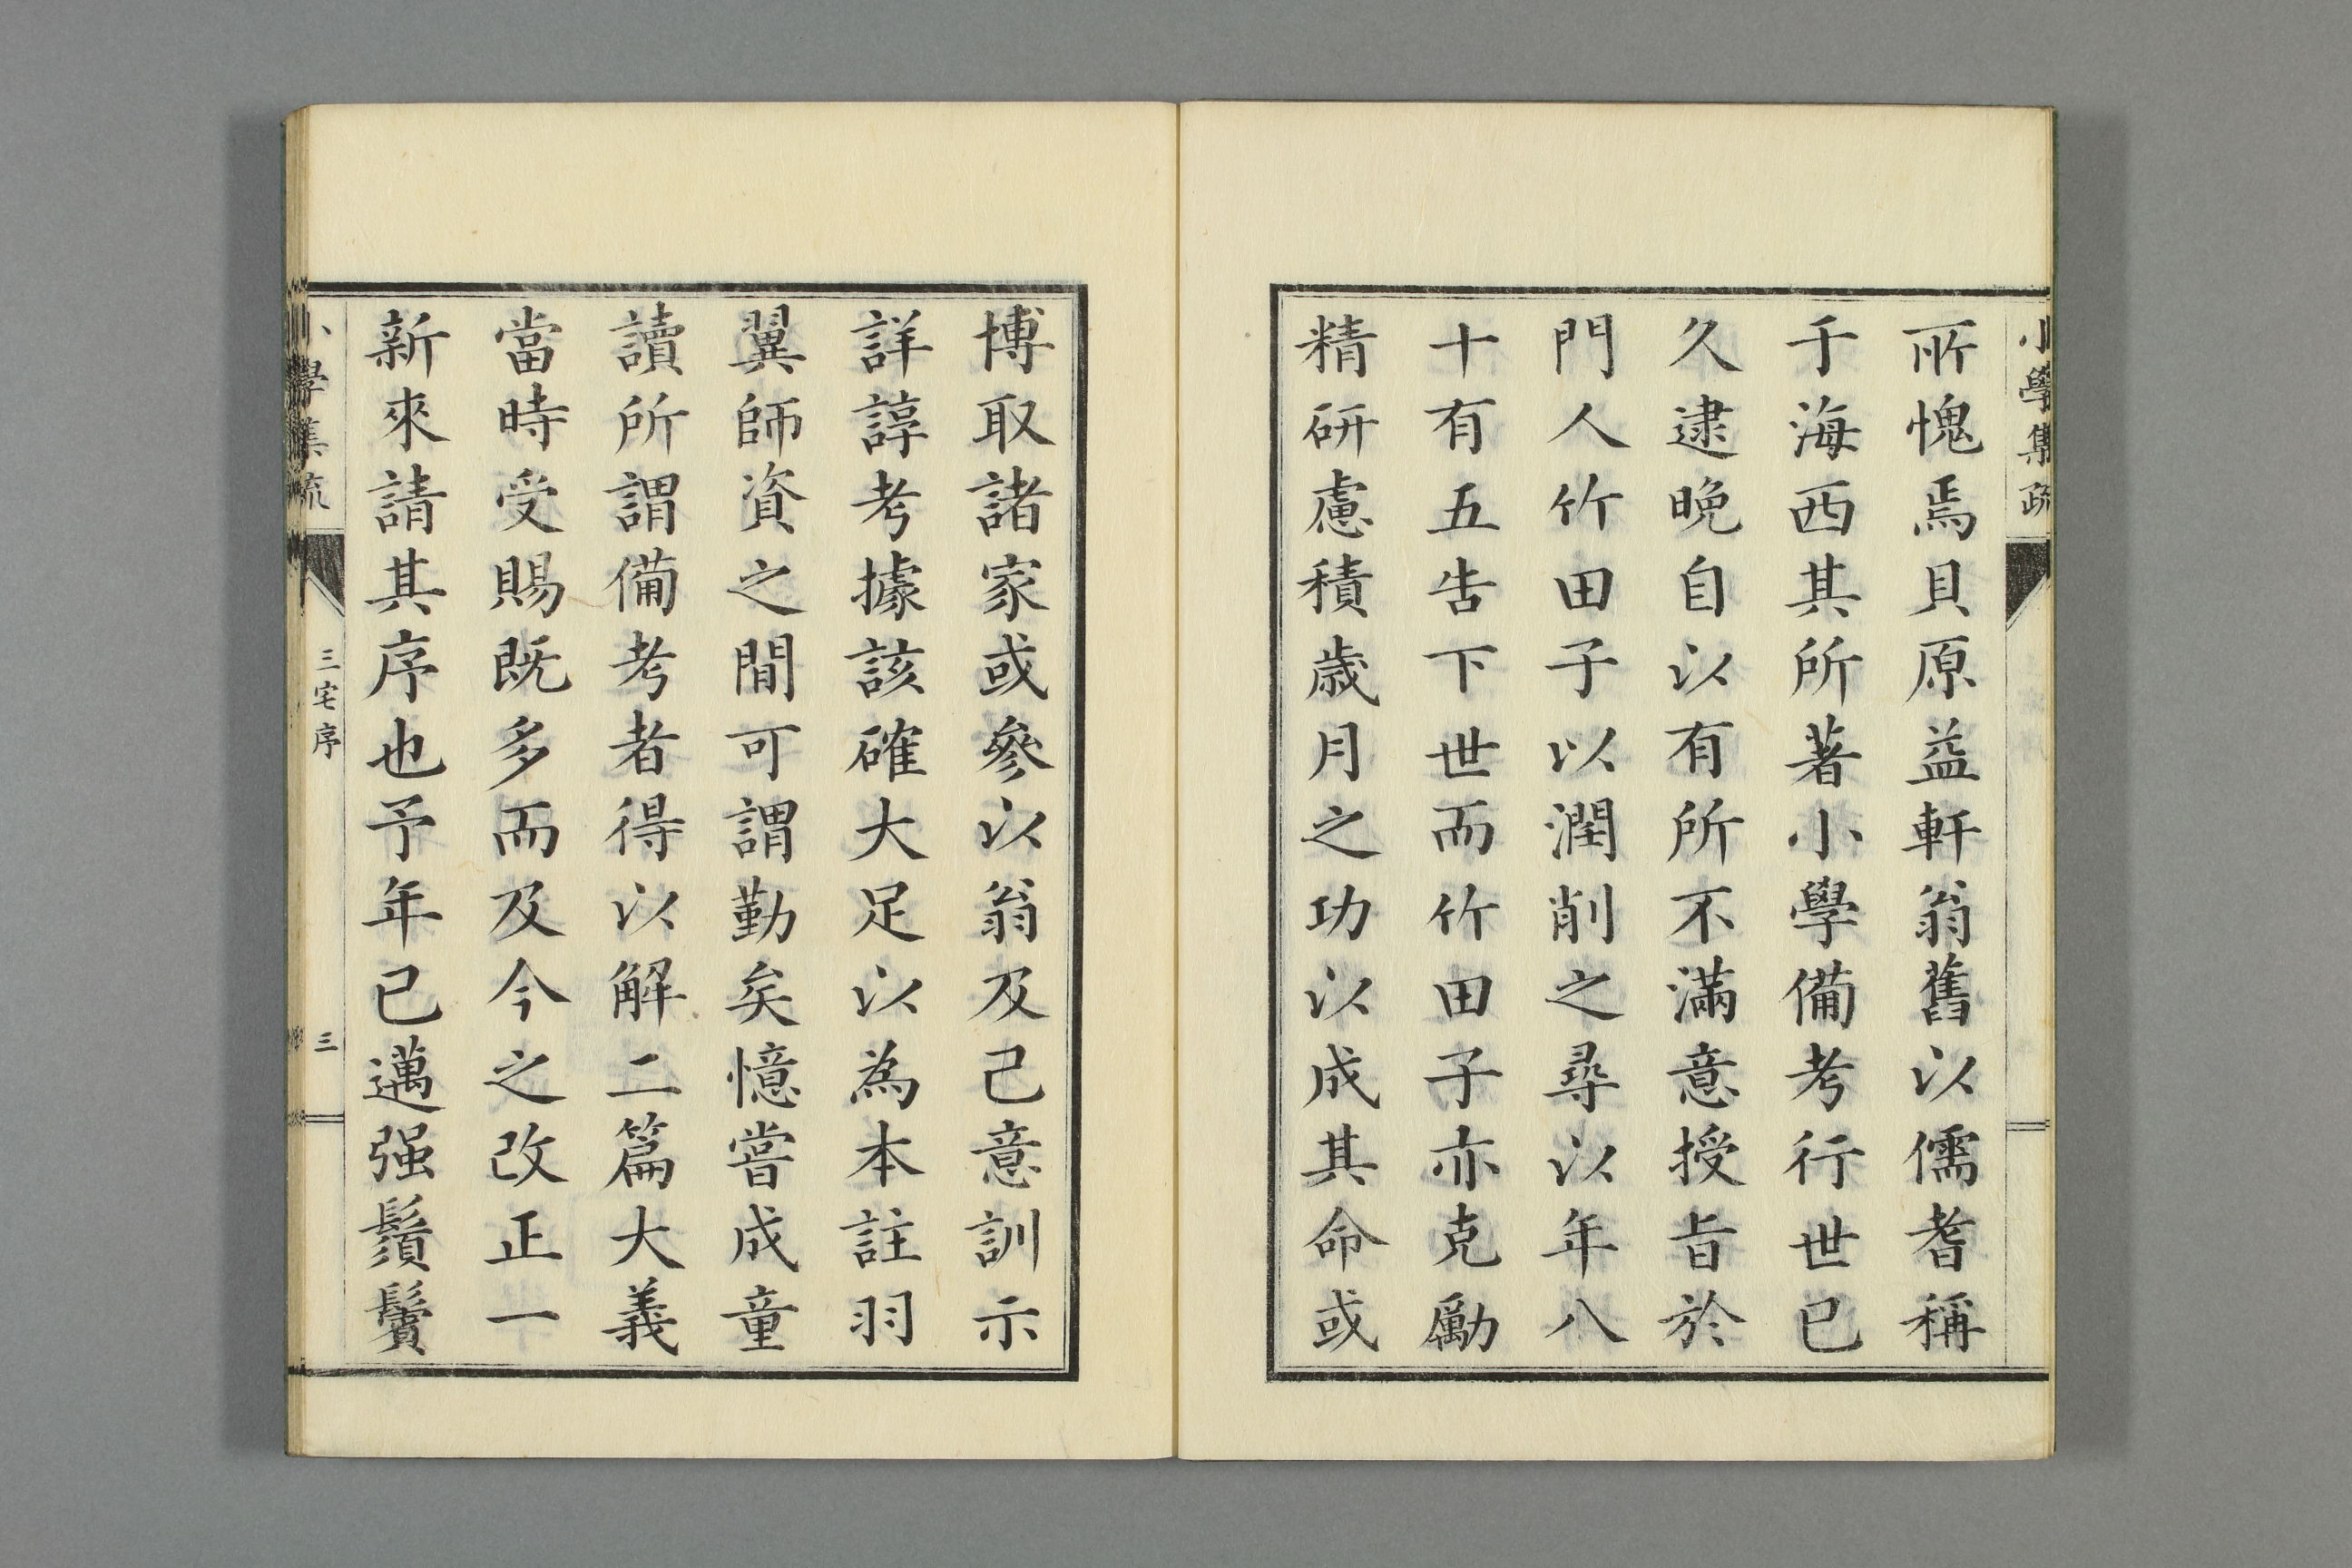 小學集疏
所愧焉貝原益軒翁舊以儒耆稱
于海西其所著小學備考行世已
久逮晚自以有所不滿意授旨於
門人竹田子以潤削之尋以年八
十有五告下世而竹田子亦克勵
精研慮積歲月之功以成其命或
博取諸家或參以翁及己意訓示
詳諄考據該確大足以為本註羽
翼師資之間可謂勤矣憶嘗成童
讀所謂備考者得以解二篇大義
當時受賜既多而及今之改正一
新來請其序也予年已邁强鬚鬢
小學集疏
三宅序
三